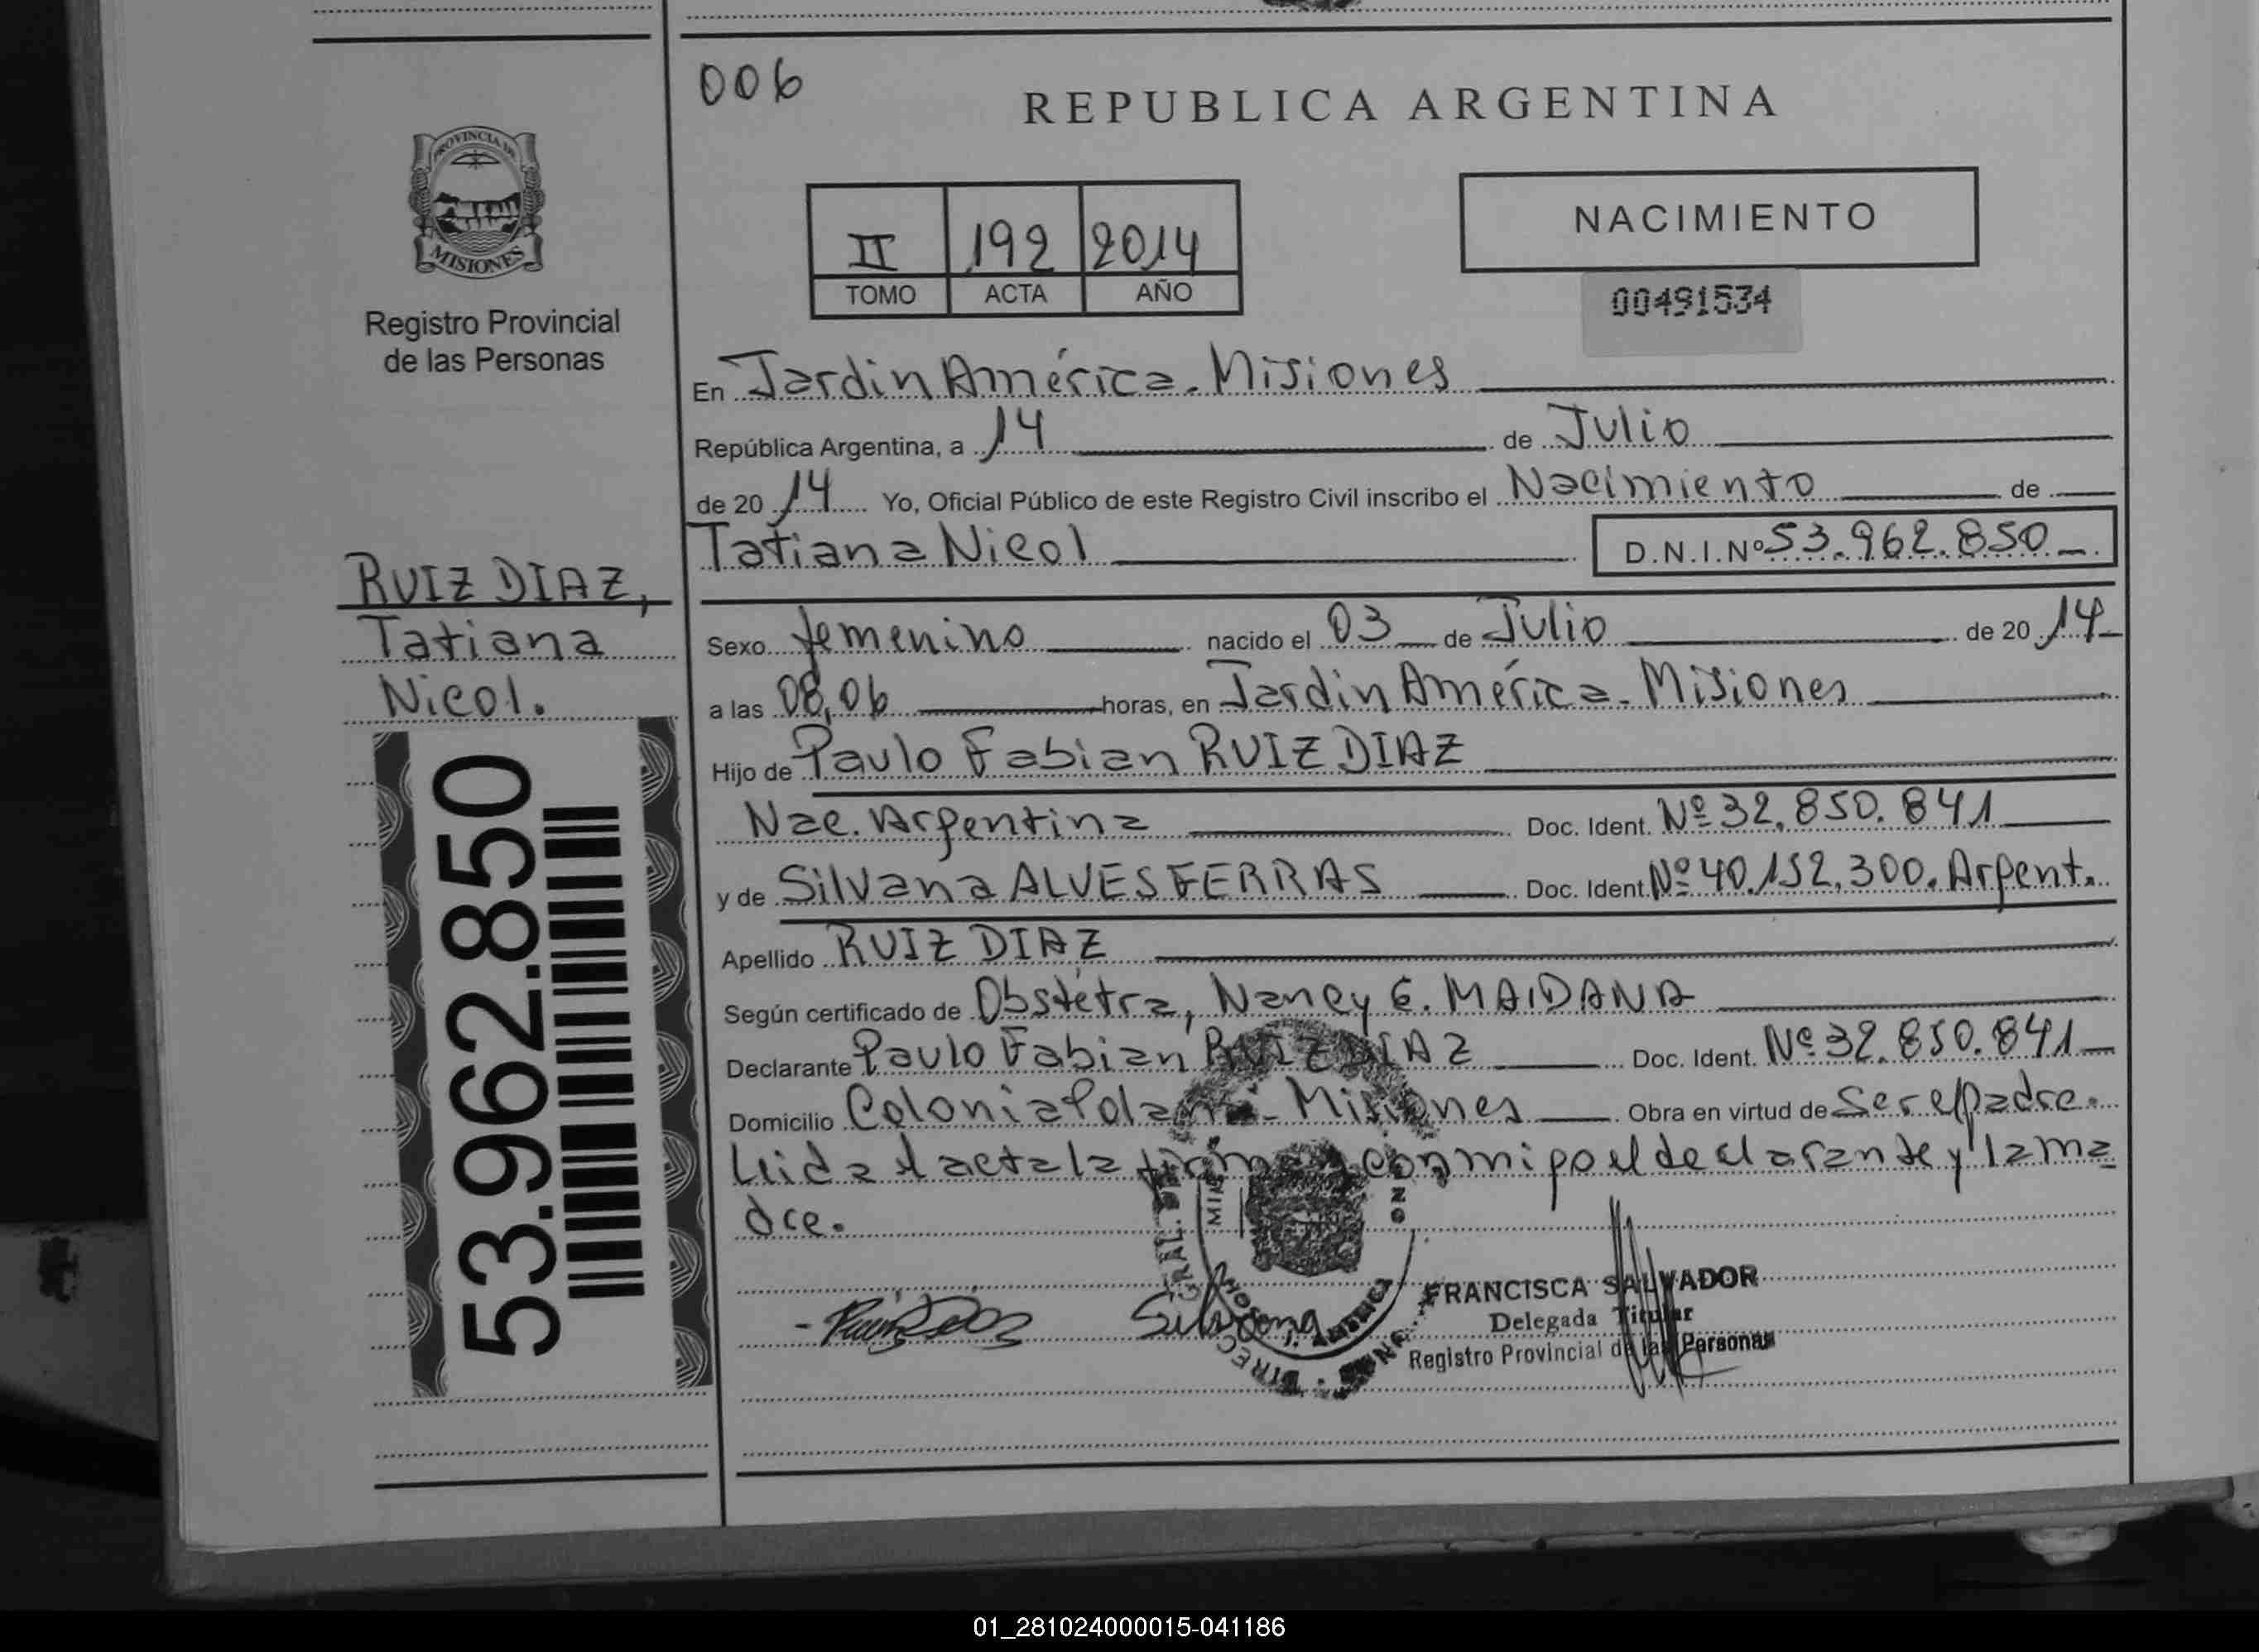 006
REPUBLICA ARGENTINA
PROVINCIA DE
MISIONES
Registro Provincial
de las Personas
II 192 2014
TOMO ACTA AÑO
NACIMIENTO
00491534
En Jardin América. Misiones
República Argentina, a 14 de Julio
de 20 14 Yo, Oficial Público de este Registro Civil inscribo el Nacimiento de
Tatiana Nicol
D.N.I.Nº 53.962.850
RUIZ DIAZ,
Tatiana
Nicol.
53.962.850
Sexo femenino nacido el 03 de Julio de 20 14
a las 08,06 horas, en Jardin América. Misiones
Hijo de Paulo Fabian RUIZ DIAZ
Nac. Argentina Doc. Ident. Nº 32.850.841
y de Silvana ALVES FERRAS Doc. Ident. Nº 40.152.300. Argent.
Apellido RUIZ DIAZ
Según certificado de Obstétra, Nancy E. MAIDANA
Declarante Paulo Fabian RUIZ DIAZ Doc. Ident. Nº 32.850.841
Domicilio Colonia Polana - Misiones Obra en virtud de Ser el padre.
Leida el acta la firman conmigo el declarante y la ma
dre.
Ruiz Diaz
Silvana
FRANCISCA SALVADOR
Delegada Titular
Registro Provincial de las Personas
01_281024000015-041186